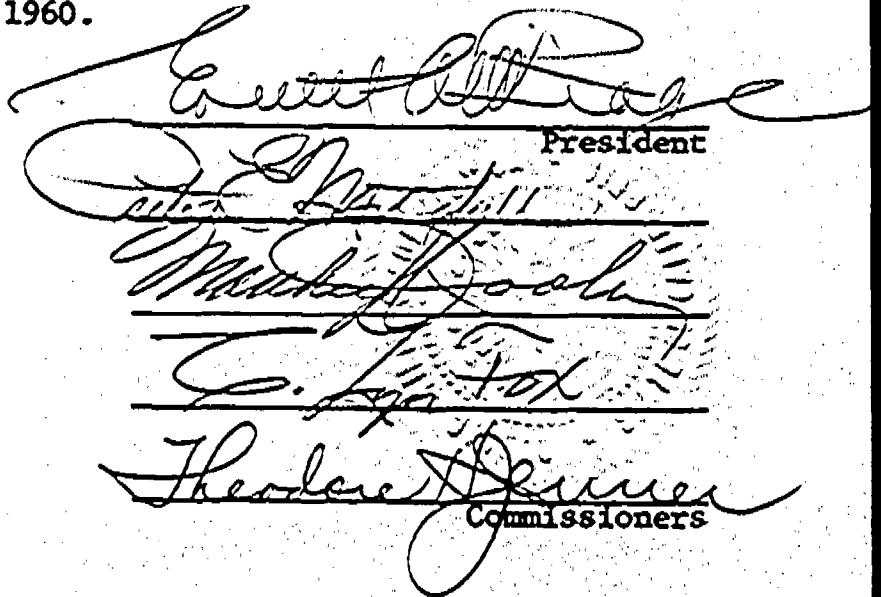 1960.
Everett C. McKeage
President
Peter E. Mitchell
Matthew J. Dooley
C. Lyn Fox
Theodore H. Jenner
Commissioners